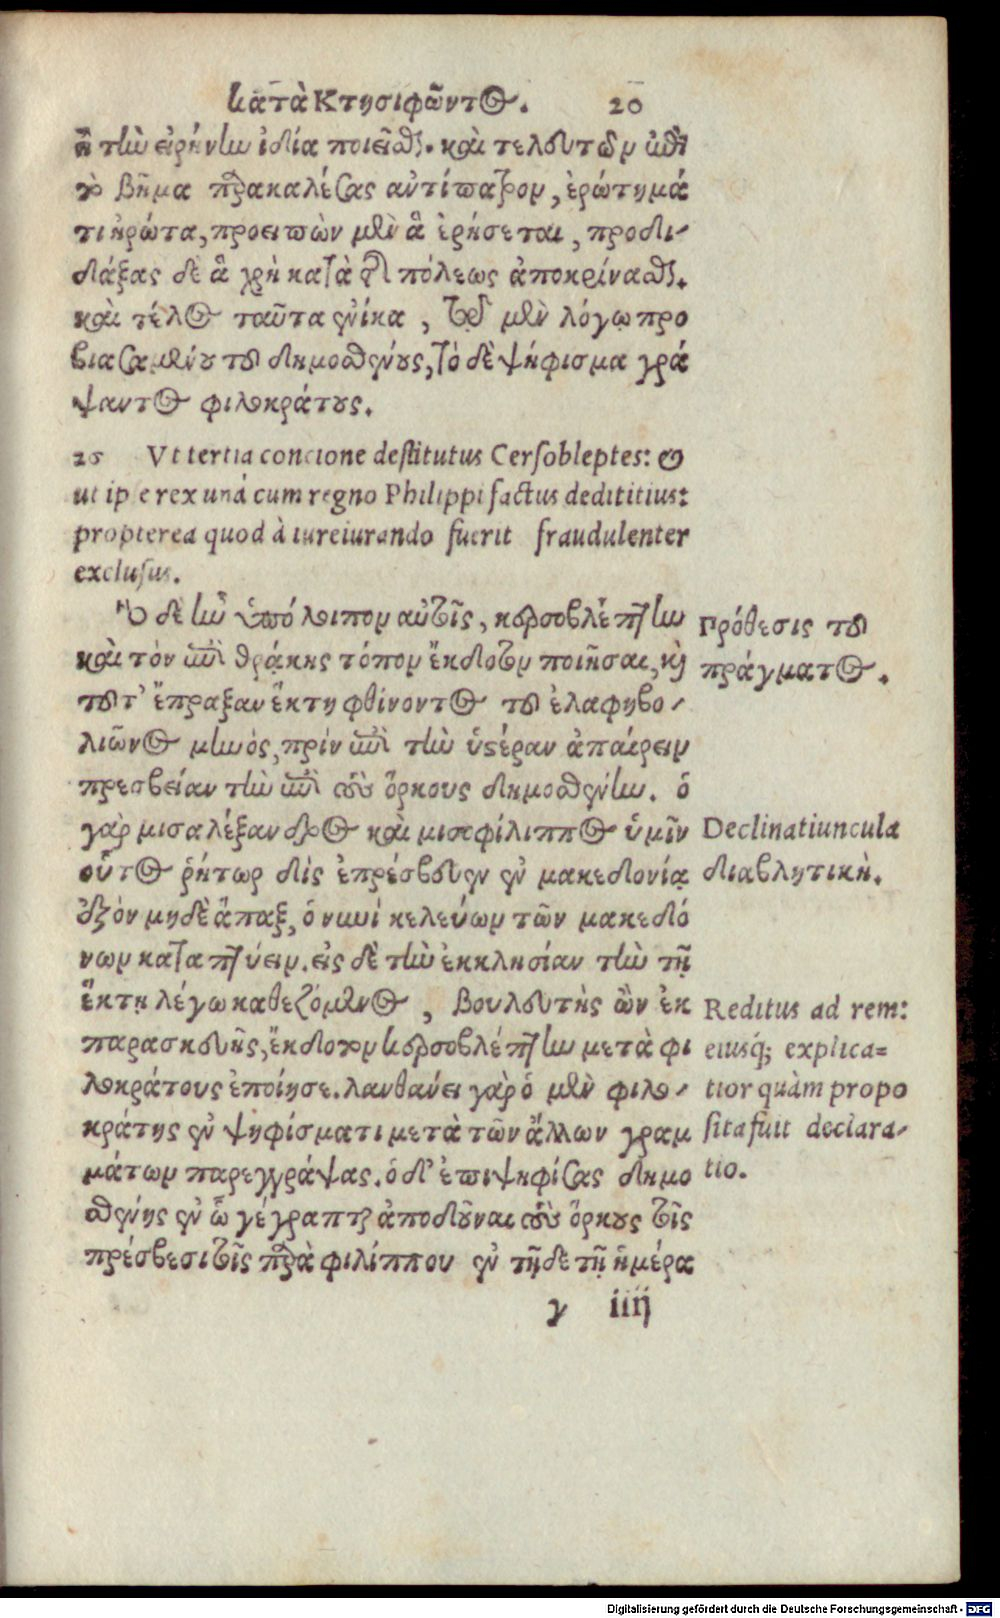 κατὰ Κτησιφῶντος. 20
ἢ τὴν εἰρήνην ἰδία ποιεῖσθαι. καὶ τελευτῶν ἐπὶ
τὸ βῆμα παρακαλέσας ἀντίπατρον, ἐρώτημά
τι ἠρώτα, προειπὼν μὲν ἃ ἐρήσεται, προδι-
δάξας δὲ ἃ χρὴ κατὰ τῆς πόλεως ἀποκρίνασθαι.
καὶ τέλος ταῦτα ἐνίκα, τῷ μὲν λόγῳ προ
βιασαμένου τοῦ δημοσθένους, τὸ δὲ ψήφισμα γρά
ψαντος φιλοκράτους.
26 Vt tertia concione destitutus Cersobleptes: &
ut ipse rex unà cum regno Philippi factus dedititius:
propterea quod à iureiurando fuerit fraudulenter
exclusus.
Ὃ δὲ ἦν ὑπόλοιπον αὐτοῖς, κερσοβλέπτην
καὶ τὸν ἐπὶ θράκης τόπον ἔκδοτον ποιῆσαι, καὶ
τοῦτ' ἔπραξαν ἕκτῃ φθίνοντος τοῦ ἐλαφηβο-
λιῶνος μηνός, πρὶν ἐπὶ τὴν ὑστέραν ἀπαίρειν
πρεσβείαν τὴν ἐπὶ τοὺς ὅρκους δημοσθένην. ὁ
γὰρ μισαλέξανδρος καὶ μισοφίλιππος ὑμῖν
οὗτος ῥήτωρ δὶς ἐπρέσβευσεν ἐν μακεδονίᾳ
ἐξὸν μηδὲ ἅπαξ, ὁ νυνὶ κελεύων τῶν μακεδό
νων καταπτύειν. εἰς δὲ τὴν ἐκκλησίαν τὴν τῇ
ἕκτῃ λέγω καθεζόμενος, βουλευτὴς ὢν ἐκ
παρασκευῆς, ἔκδοτον κερσοβλέπτην μετὰ φι
λοκράτους ἐποίησε. λανθάνει γὰρ ὁ μὲν φιλο-
κράτης ἐν ψηφίσματι μετὰ τῶν ἄλλων γραμ
μάτων παρεγγράψας. ὁ δ' ἐπιψηφίσας δημο
σθένης ἐν ᾧ γέγραπται ἀποδοῦναι τοὺς ὅρκους τοῖς
πρέσβεσι τοῖς παρὰ φιλίππου ἐν τῇδε τῇ ἡμέρα
γ iiij
Πρόθεσις τοῦ
πράγματος.
Declinatiuncula
διαβλητική.
Reditus ad rem:
eiusq́; explica=
tior quàm propo
sita fuit declara-
tio.
Digitalisierung gefördert durch die Deutsche Forschungsgemeinschaft - DFG